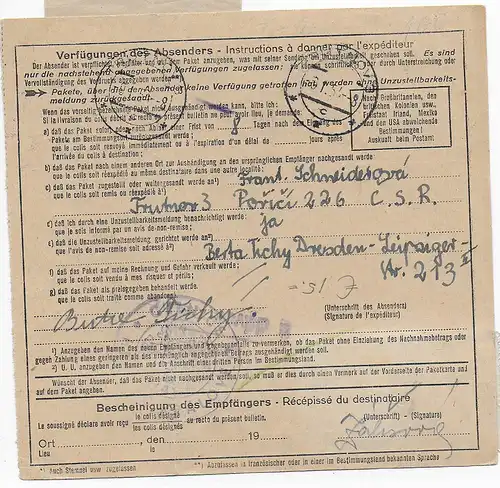 Verfügungen des Absenders - Instructions à donner par l'expéditeur
Der Absender ist verpflichtet, auf dem Paket anzugeben, was mit seiner Sendung geschehen soll. Es sind
nur die nachstehend angegebenen Verfügungen zugelassen:
Pakete, über die der Absender keine Verfügung getroffen hat, werden ohne Unzustellbarkeits-
meldung zurückgesandt.
Wenn das vorseitig werden kann, bitte ich:
Si la livraison du colis au recto du présent bulletin ne peut avoir lieu, je demande:
a) daß das Paket sofort, oder nach Ablauf einer Frist von 8 Tagen nach dem Eingang des
Pakets am Bestimmungsort zurückgesandt werde
que le colis soit renvoyé immédiatement ou à l'expiration d'un délai de jours après
l'arrivée du colis à destination.
Nach Großbritannien, den
britischen Kolonien usw.
Freistaat Irland, Mexiko
und den USA abweichende
Bestimmungen!
Auskunft beim Postamt
b) daß das Paket nach einem anderen Ort zur Aushändigung an den ursprünglichen Empfänger nachgesandt werde
que le colis soit réexpédié au même destinataire dans une autre localité:
c) daß das Paket zugestellt oder weitergesandt werde an¹) Frant. Schneiderová
que le colis soit remis ou réexpédié à¹)
Trutnov 3 Poříčí 226 C. S. R.
d) daß ich durch eine Unzustellbarkeitsmeldung benachrichtigt werde: ja
que je sois informé par un avis de non-remise:
e) daß die Unzustellbarkeitsmeldung gerichtet werde an²)
que l'avis de non-remise soit adressé à²) Berta Tichy Dresden-Leipziger-
f) daß das Paket auf meine Rechnung und Gefahr verkauft werde: Nr. 213
que le colis soit vendu à mes risques et périls;
g) daß das Paket als preisgegeben behandelt werde.
que le colis soit traité comme abandonné.
Berta Tichy.
(Unterschrift des Absenders)
(Signature de l'expéditeur)
¹) Anzugeben den Namen des neuen Empfängers und gegebenenfalls zu vermerken, ob das Paket ohne Einziehung des Nachnahmebetrags oder
gegen Zahlung eines geringeren als des ursprünglich angegebenen Betrags ausgehändigt werden soll.
²) U. U. anzugeben den Namen und die Anschrift einer dritten Person im Bestimmungsland.
Wünscht der Absender, daß das Paket nicht nachgesandt werden soll, so muß er dies durch einen Vermerk auf der Vorderseite der Paketkarte und
auf dem Paket angeben.
Bescheinigung des Empfängers - Récépissé du destinataire
Le soussigné déclare avoir reçu le colis désigné au recto du présent bulletin. (Unterschrift) - (Signature)
les colis désignés
Ort , den 19
Lieu le
*) Auch Stempel usw. zugelassen **) Abzufassen in französischer oder in einer im Bestimmungsland bekannten Sprache